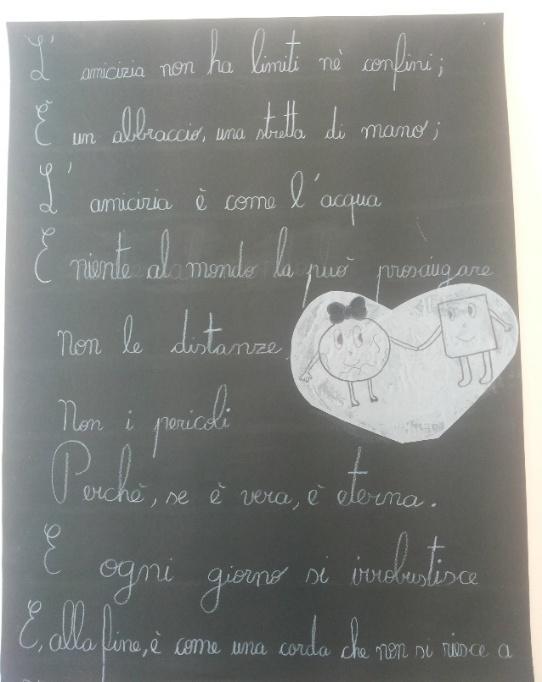 L' amicizia non ha limiti nè confini;
È un abbraccio, una stretta di mano;
L' amicizia è come l'acqua
E niente al mondo la può prosciugare
Non le distanze
Non i pericoli
Perchè, se è vera, è eterna.
E ogni giorno si irrobustisce
E, alla fine, è come una corda che non si riesce a